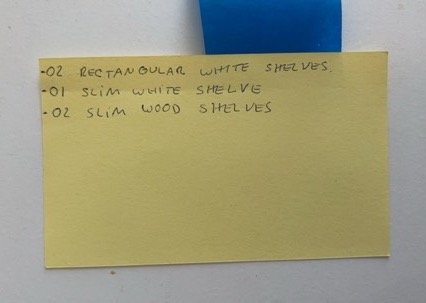 -02 RECTANGULAR WHITE SHELVES.
-01 SLIM WHITE SHELVE
-02 SLIM WOOD SHELVES